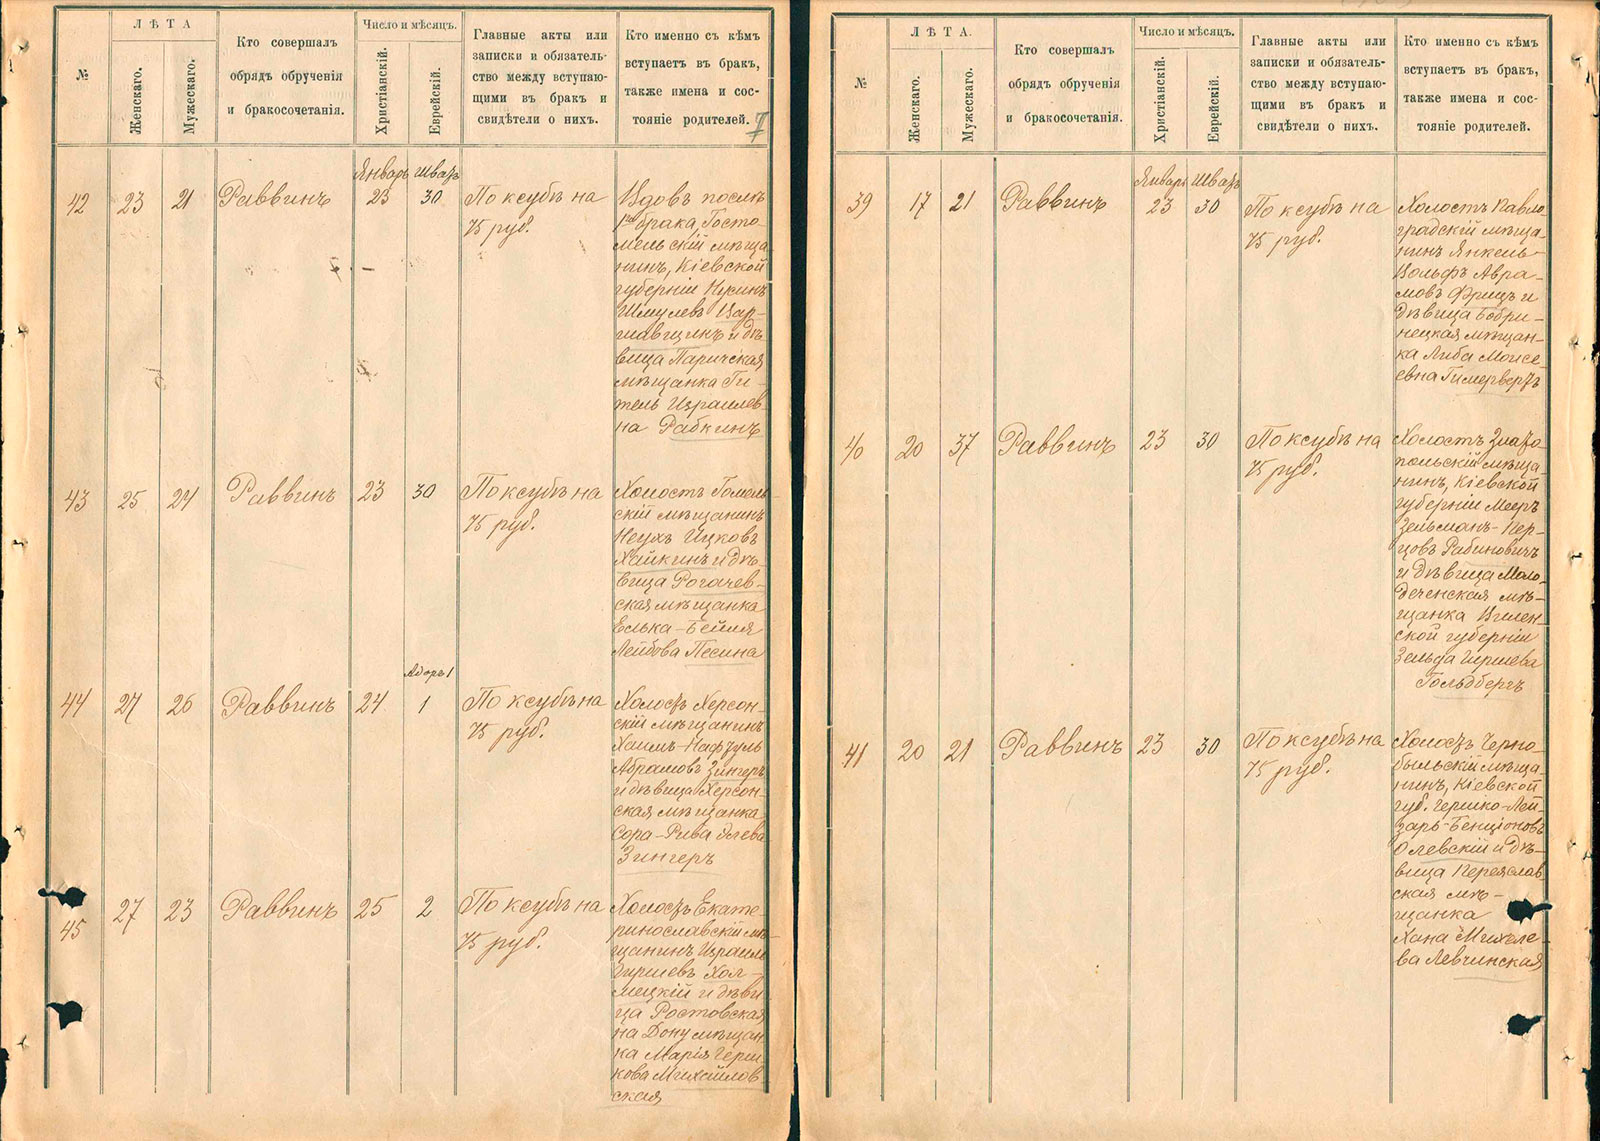 №
ЛѢТА
Женскаго.
Мужескаго.
Кто совершалъ
обрядъ обрученія
и бракосочетанія.
Число и мѣсяцъ.
Христіанскій.
Еврейскій.
Главные акты или
записки и обязатель-
ство между вступаю-
щими въ бракъ и
свидѣтели о нихъ.
Кто именно съ кѣмъ
вступаетъ въ бракъ,
также имена и сос-
тояніе родителей.
7
Январь Шватъ
42 23 21 Раввинъ 23 30
По ксубѣ на
75 руб.
Вдовъ послѣ
1го брака, Госто-
мельскій мѣща-
нинъ, Кіевской
губерніи Нусинъ
Шмулевъ Вар-
шавщикъ и дѣ-
вица Паричская
мѣщанка Ги-
тель Израилев-
на Рабкинъ
43 25 24 Раввинъ 23 30
По ксубѣ на
75 руб.
Холостъ Гомель-
скій мѣщанинъ
Неухъ Ицковъ
Хайкинъ и дѣ-
вица Рогачев-
ская мѣщанка
Елька-Бейля
Лейбова Песина
Адоръ 1
44 27 26 Раввинъ 24 1
По ксубѣ на
75 руб.
Холостъ Херсон-
скій мѣщанинъ
Хаимъ-Нафтуль
Абрамовъ Зингеръ
и дѣвица Херсон-
ская мѣщанка
Сора-Рива Элева
Зингеръ
45 27 23 Раввинъ 25 2
По ксубѣ на
75 руб.
Холостъ Екате-
ринославскій мѣ-
щанинъ Израиль
Гиршевъ Хол-
мецкій и дѣви-
ца Ростовская
на Дону мѣщан-
ка Марія Герш-
кова Михайлов-
ская
№
ЛѢТА.
Женскаго.
Мужескаго.
Кто совершалъ
обрядъ обрученія
и бракосочетанія.
Число и мѣсяцъ.
Христіанскій.
Еврейскій.
Главные акты или
записки и обязатель-
ство между вступаю-
щими въ бракъ и
свидѣтели о нихъ.
Кто именно съ кѣмъ
вступаетъ въ бракъ,
также имена и сос-
тояніе родителей.
Январь Шватъ
39 17 21 Раввинъ 23 30
По ксубѣ на
75 руб.
Холостъ Павло-
градскій мѣща-
нинъ Янкель-
Вольфъ Авра-
мовъ Фрицъ и
дѣвица Бобри-
нецкая мѣщан-
ка Либа Моисе-
евна Гимервертъ
40 20 37 Раввинъ 23 30
По ксубѣ на
75 руб.
Холостъ Злато-
польскій мѣща-
нинъ, Кіевской
губерніи Мееръ
Зельманъ-Пер-
цовъ Рабиновичъ
и дѣвица Моло-
деченская мѣ-
щанка Вилен-
ской губерніи
Зельда Гиршева
Гольдбергъ
41 20 21 Раввинъ 23 30
По ксубѣ на
75 руб.
Холостъ Черно-
быльскій мѣща-
нинъ, Кіевской
губ. Гершко-Лей-
заръ-Бенціоновъ
Олевскій и дѣ-
вица Переяслав-
ская мѣ-
щанка
Хана Михеле-
ва Левчинская